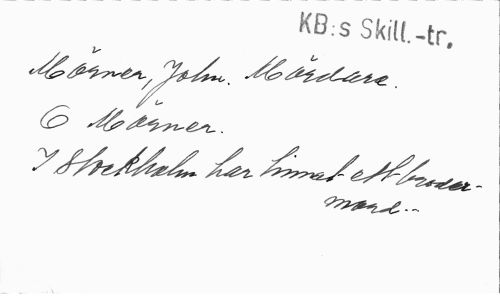 KB:s Skill.-tr.
Mörner, John. Mördare.
O Mörner.
I Stockholm har hinnat ett broder-
mord..